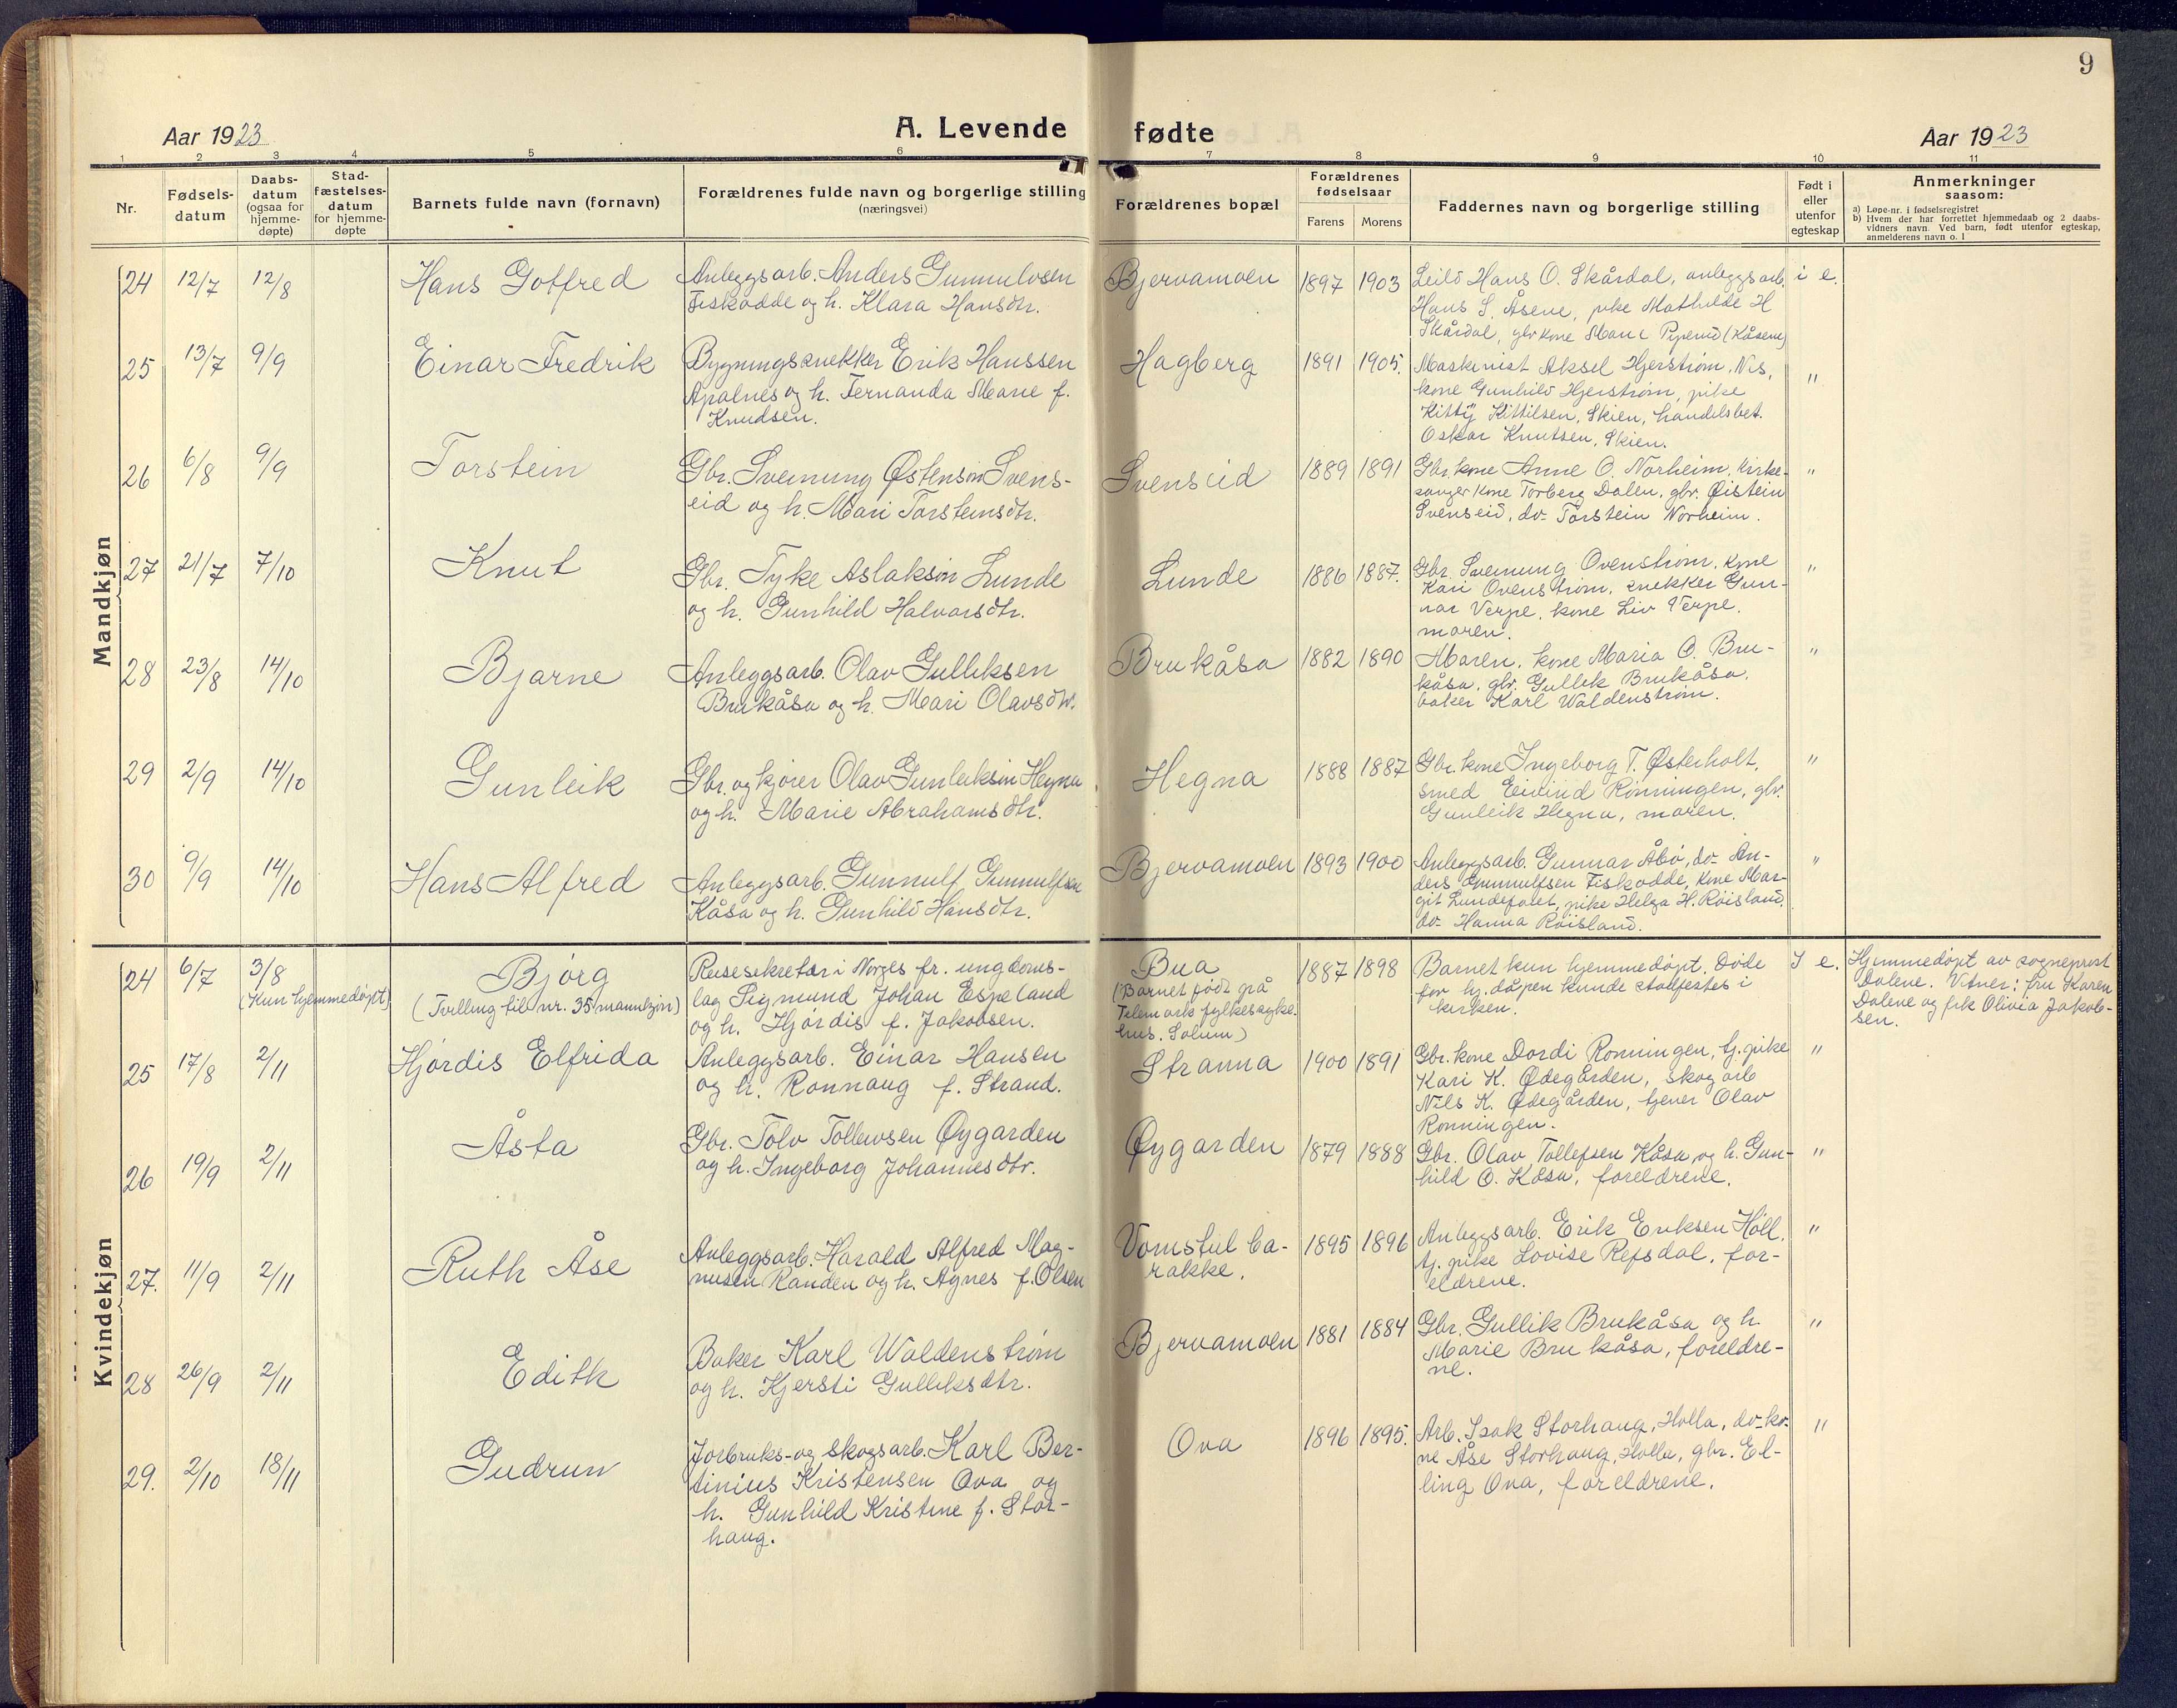 9
Aar 1923
A. Levende fødte
Aar 1923
1 2 3 4 5 6 7 8 9 10 11
Nr.
Fødsels-
datum
Daabs-
datum
(ogsaa for
hjemme-
døpte)
Stad-
fæstelses-
datum
for hjemme-
døpte
Barnets fulde navn (fornavn)
Forældrenes fulde navn og borgerlige stilling
(næringsvei)
Forældrenes bopæl
Forældrenes
fødselsaar
Farens Morens
Faddernes navn og borgerlige stilling
Født i
eller
utenfor
egteskap
Anmerkninger
saasom:
a) Løpe-nr. i fødselsregistret
b) Hvem der har forrettet hjemmedaab og 2 daabs-
vidners navn. Ved barn, født utenfor egteskap,
anmelderens navn o. l
Mandkjøn
24 12/7 12/8 Hans Gotfred
Anleggsarb. Anders Gunnulvsen
Fiskodde og h. Klara Hansdtr.
Bjervamoen 1897 1903
Leilb Hans O. Skårdal, anleggsarb.
Hans S. Åsene, pike Mathilde H
Skårdal, gbrkone Mari (Kåsene)
i e.
25 13/7 9/9 Einar Fredrik
Bygningssnekker Erik Hanssen
Apalnes og h. Fernanda Marie f.
Knudsen.
Hagberg 1891 1905.
Maskinist Aksel Hjerstrøm, Nes,
kone Gunhild Hjerstrøm, pike
Kitty Kittilsen, Skien, handelsbet.
Oskar Knutsen, Skien.
"
26 6/8 9/9 Torstein
Gbr. Sveinung Østensøn Svens-
eid og h. Mari Torsteinsdtr.
Svenseid 1889 1891
Gbr. kone Anne O. Norheim, kirke-
sangerkone Torberg Dalen, gbr. Øistein
Svenseid, do- Torstein Norheim.
"
27 21/7 7/10 Knut
Gbr. Tyke Aslaksøn Lunde
og h. Gunhild Halvorsdtr.
Lunde 1886 1887.
Gbr. Sveinung Ovenstrøm, kone
Kari Ovenstrøm, snekker Gun-
nar Verpe, kone Liv Verpe.
moren.
"
28 23/8 14/10 Bjarne
Anleggsarb. Olav Gulliksen
Brukåsa og h. Mari Olavsdtr.
Brukåsa 1882 1890
Moren, kone Maria O. Bru-
kåsa, gbr. Gullek Brukåsa,
baker Karl Waldenstrøm.
"
29 2/9 14/10 Gunleik
Gbr. og kjører Olav Gunleiksøn Hegna
og h. Marie Abrahamsdtr.
Hegna 1888 1887
Gbr. kone Ingeborg T. Østerholt,
smed Eivind Rønningen, gbr.
Gunleik Hegna, moren.
"
30 9/9 14/10 Hans Alfred
Anleggsarb. Gunnulf Gunnulfsen
Kåsa og h. Gunhild Hansdtr.
Bjervamoen 1893 1900
Anleggsarb. Gunnar Åbø, do- An-
ders Gunnulfsen Fiskodde, kone Mar-
git Lundefaret, pike Helga H. Røisland,
do- Hanna Røisland.
"
Kvindekjøn
24 6/7 3/8
(Kun hjemmedøpt)
Bjørg
(Tvilling til nr. 35 mannkjøn)
Reisesekretær i Norges fr. ungdoms-
lag Sigmund Johan Espeland
og h. Hjørdis f. Jakobsen.
Bua
(Barnet født på
Telemark fylkessyke-
hus. Solum)
1887 1898
Barnet kun hjemmedøpt. Døde
før hj. dåpen kunde stadfestes i
kirken.
I e.
Hjemmedøpt av sogneprest
Dalene. Vitner: fru Karen
Dalene og frk Olivia Jakob-
sen.
25 17/8 2/11 Hjørdis Elfrida
Anleggsarb. Einar Hansen
og h. Rønnaug f. Strand.
Stranna 1900 1891
Gbr. kone Dordi Rønningen, tj. pike
Kari K. Ødegården, skogarb
Nils K. Ødegården, tjener Olav
Rønningen.
"
26 19/9 2/11 Åsta
Gbr. Tolv Tollevsen Øygarden
og h. Ingeborg Johannesdtr.
Øygarden 1879 1888
Gbr. Olav Tollefsen Kåsa og h. Gun-
hild O. Kåsa, foreldrene.
"
27. 11/9 2/11 Ruth Åse
Anleggsarb. Harald Alfred Mag-
nusen Randen og h. Agnes f. Olsen
Vomstul ba-
rakke.
1895 1896
Anleggsarb. Erik Eriksen Höll,
tj. pike Lovise Refsdal, for-
eldrene.
"
28 26/9 2/11 Edith
Baker Karl Waldenstrøm
og h. Kjersti Gulliksdtr.
Bjervamoen 1881 1884
Gbr. Gullik Brukåsa og h.
Marie Brukåsa, foreldre-
ne.
"
29. 2/10 18/11 Gudrun
Jorbruks- og skogsarb. Karl Ber-
tinius Kristensen Ova og
h. Gunhild Kristine f. Stor-
haug.
Ova 1896 1895.
Arb. Isak Storhaug, Holla, do-ko-
ne Åse Storhaug, Holla, gbr. El-
ling Ova, foreldrene.
"